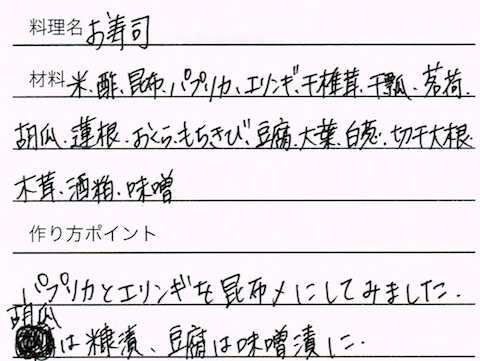 料理名 お寿司
材料 米、酢、昆布、パプリカ、エリンギ、干椎茸、干瓢、茗荷、
胡瓜、蓮根、おくら、もちきび、豆腐、大葉、白葱、切干大根、
木茸、酒粕、味噌
作り方ポイント
パプリカとエリンギを昆布〆にしてみました。
胡瓜は糠漬、豆腐は味噌漬に。